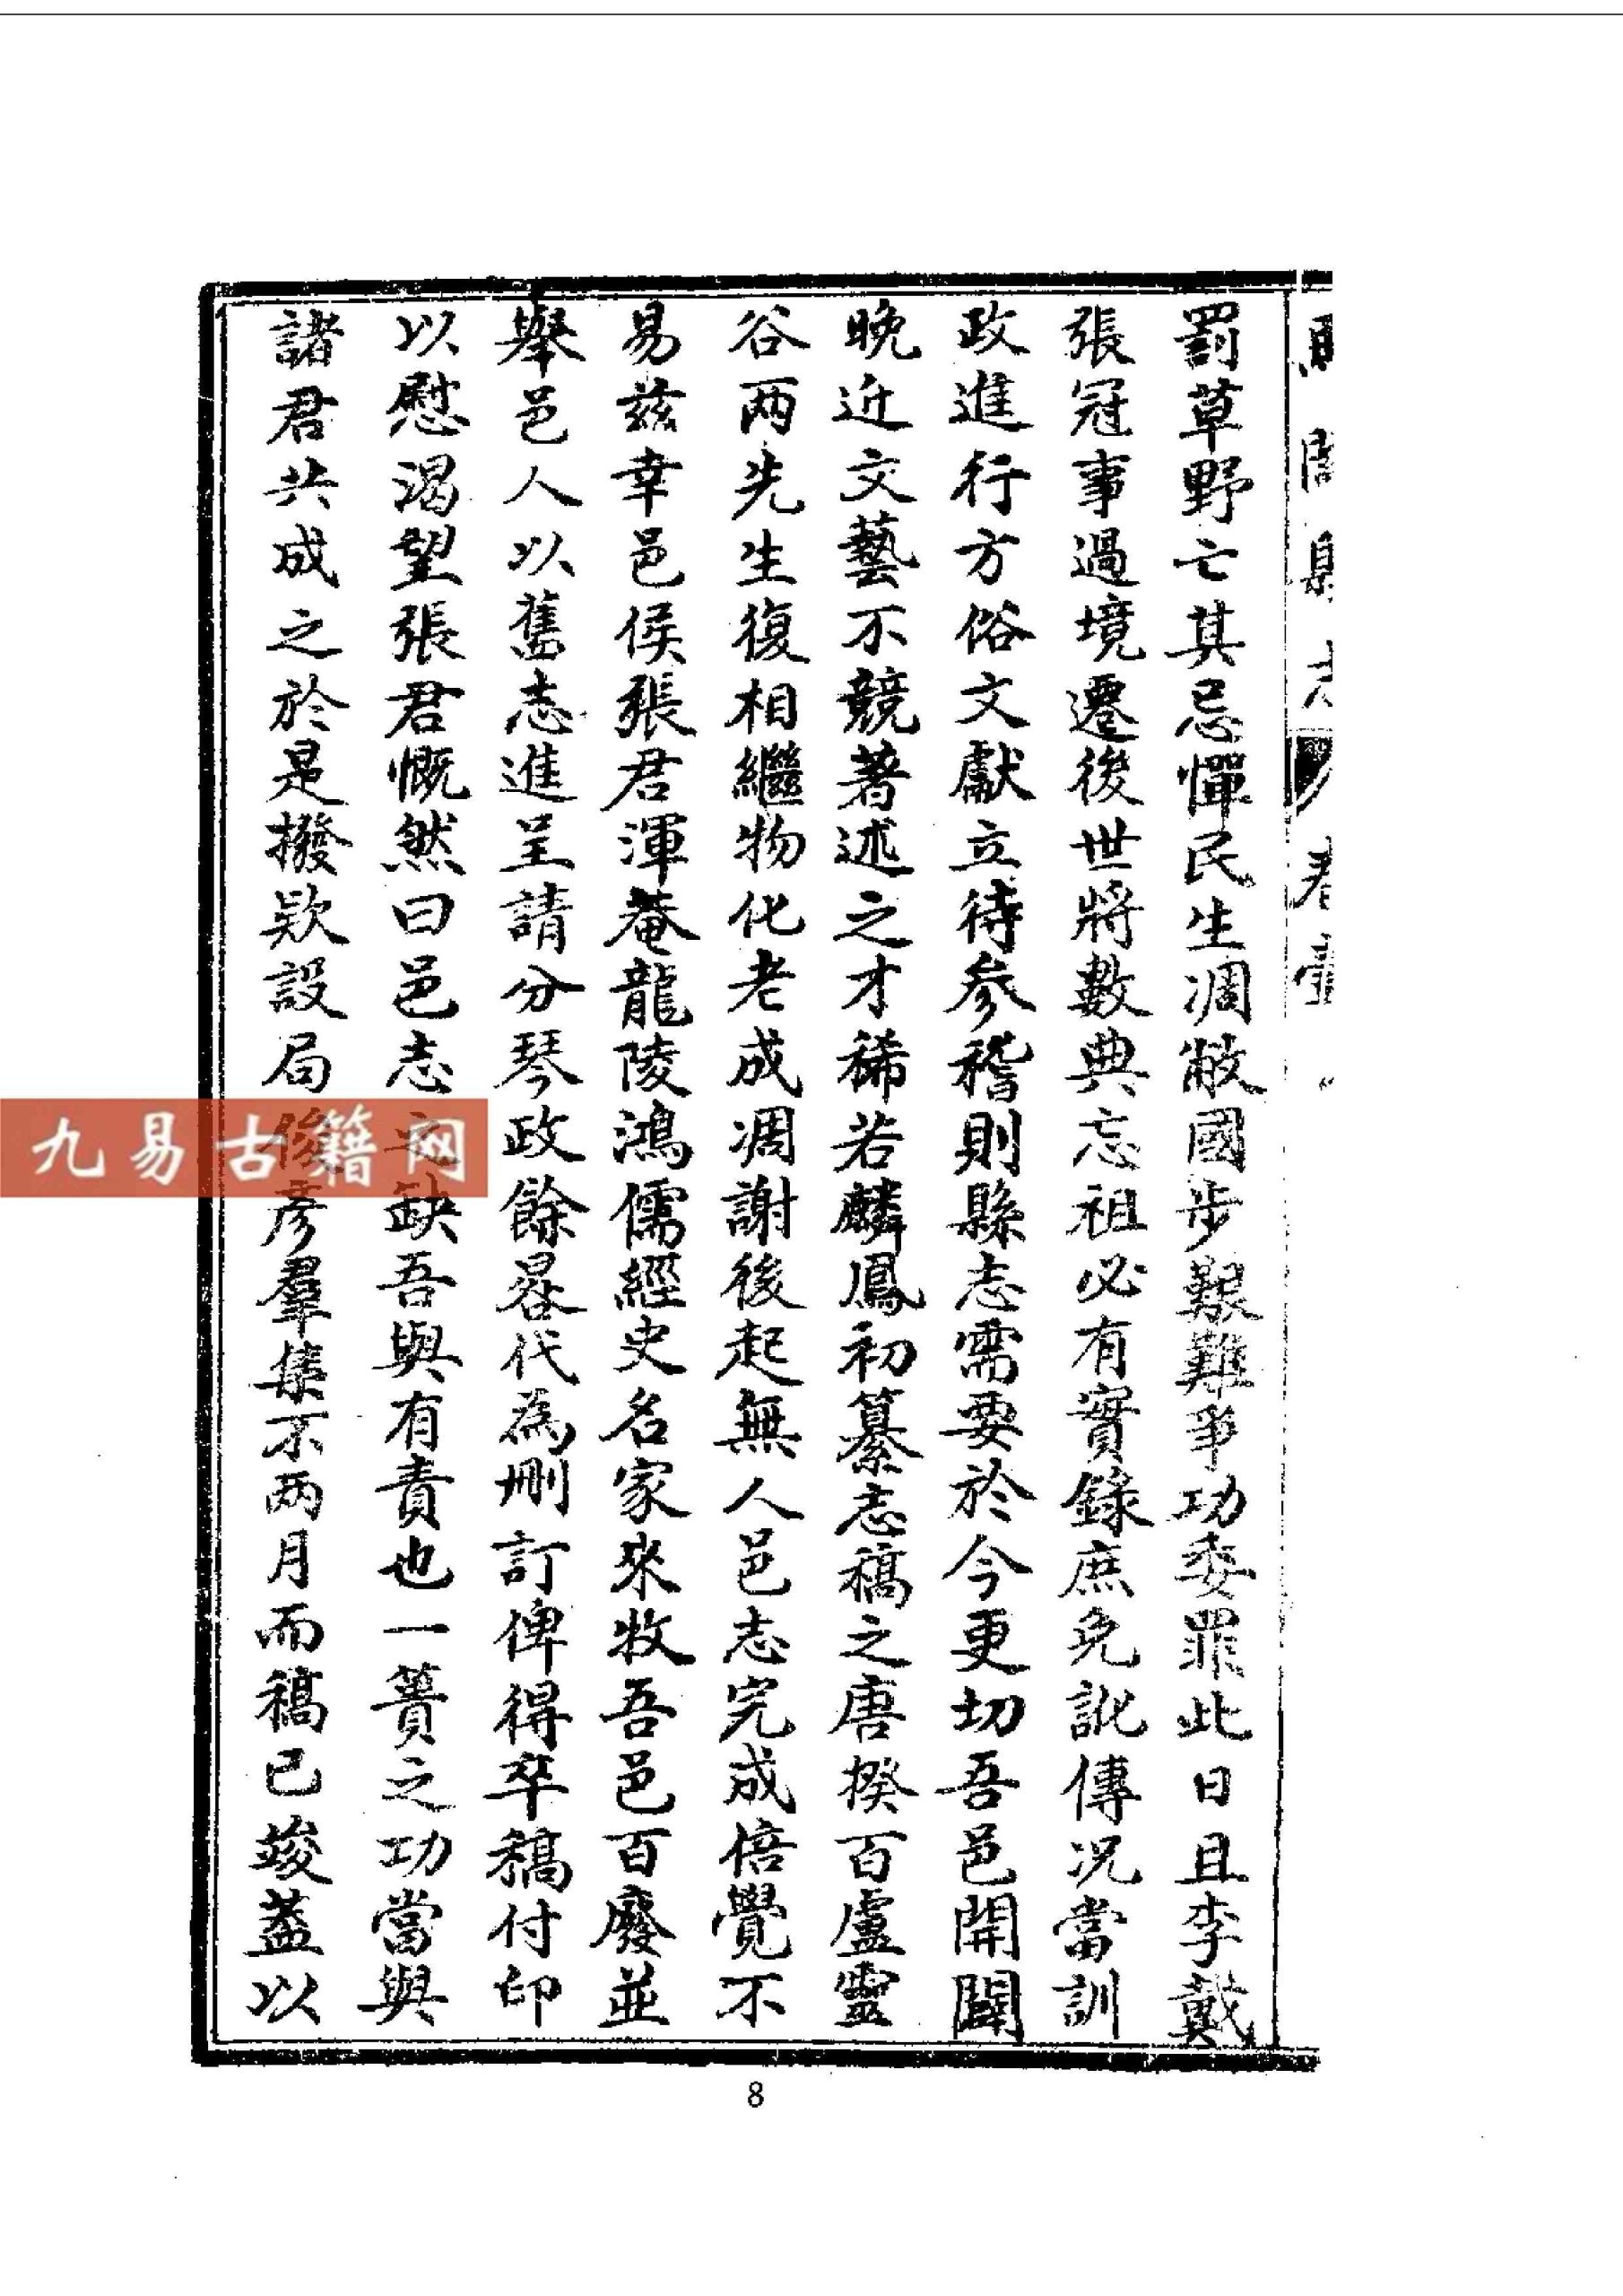 馬關縣志 卷壹
罰草野亡其忌憚民生凋敝國步艱難爭功委罪此日且李戴
張冠事過境遷後世將數典忘祖必有實錄庶免訛傳況當訓
政進行方俗文獻立待參稽則縣志需要於今更切吾邑開闢
晚近文藝不競著述之才稀若麟鳳初纂志稿之唐揆百盧靈
谷兩先生復相繼物化老成凋謝後起無人邑志完成倍覺不
易茲幸邑侯張君渾菴龍陵鴻儒經史名家來牧吾邑百廢並
舉邑人以舊志進呈請分琴政餘晷代為刪訂俾得卒稿付印
以慰渴望張君慨然曰邑志之缺吾與有責也一簣之功當與
諸君共成之於是撥欵設局俊彥羣集不两月而稿已竣蓋以
九易古籍网
8